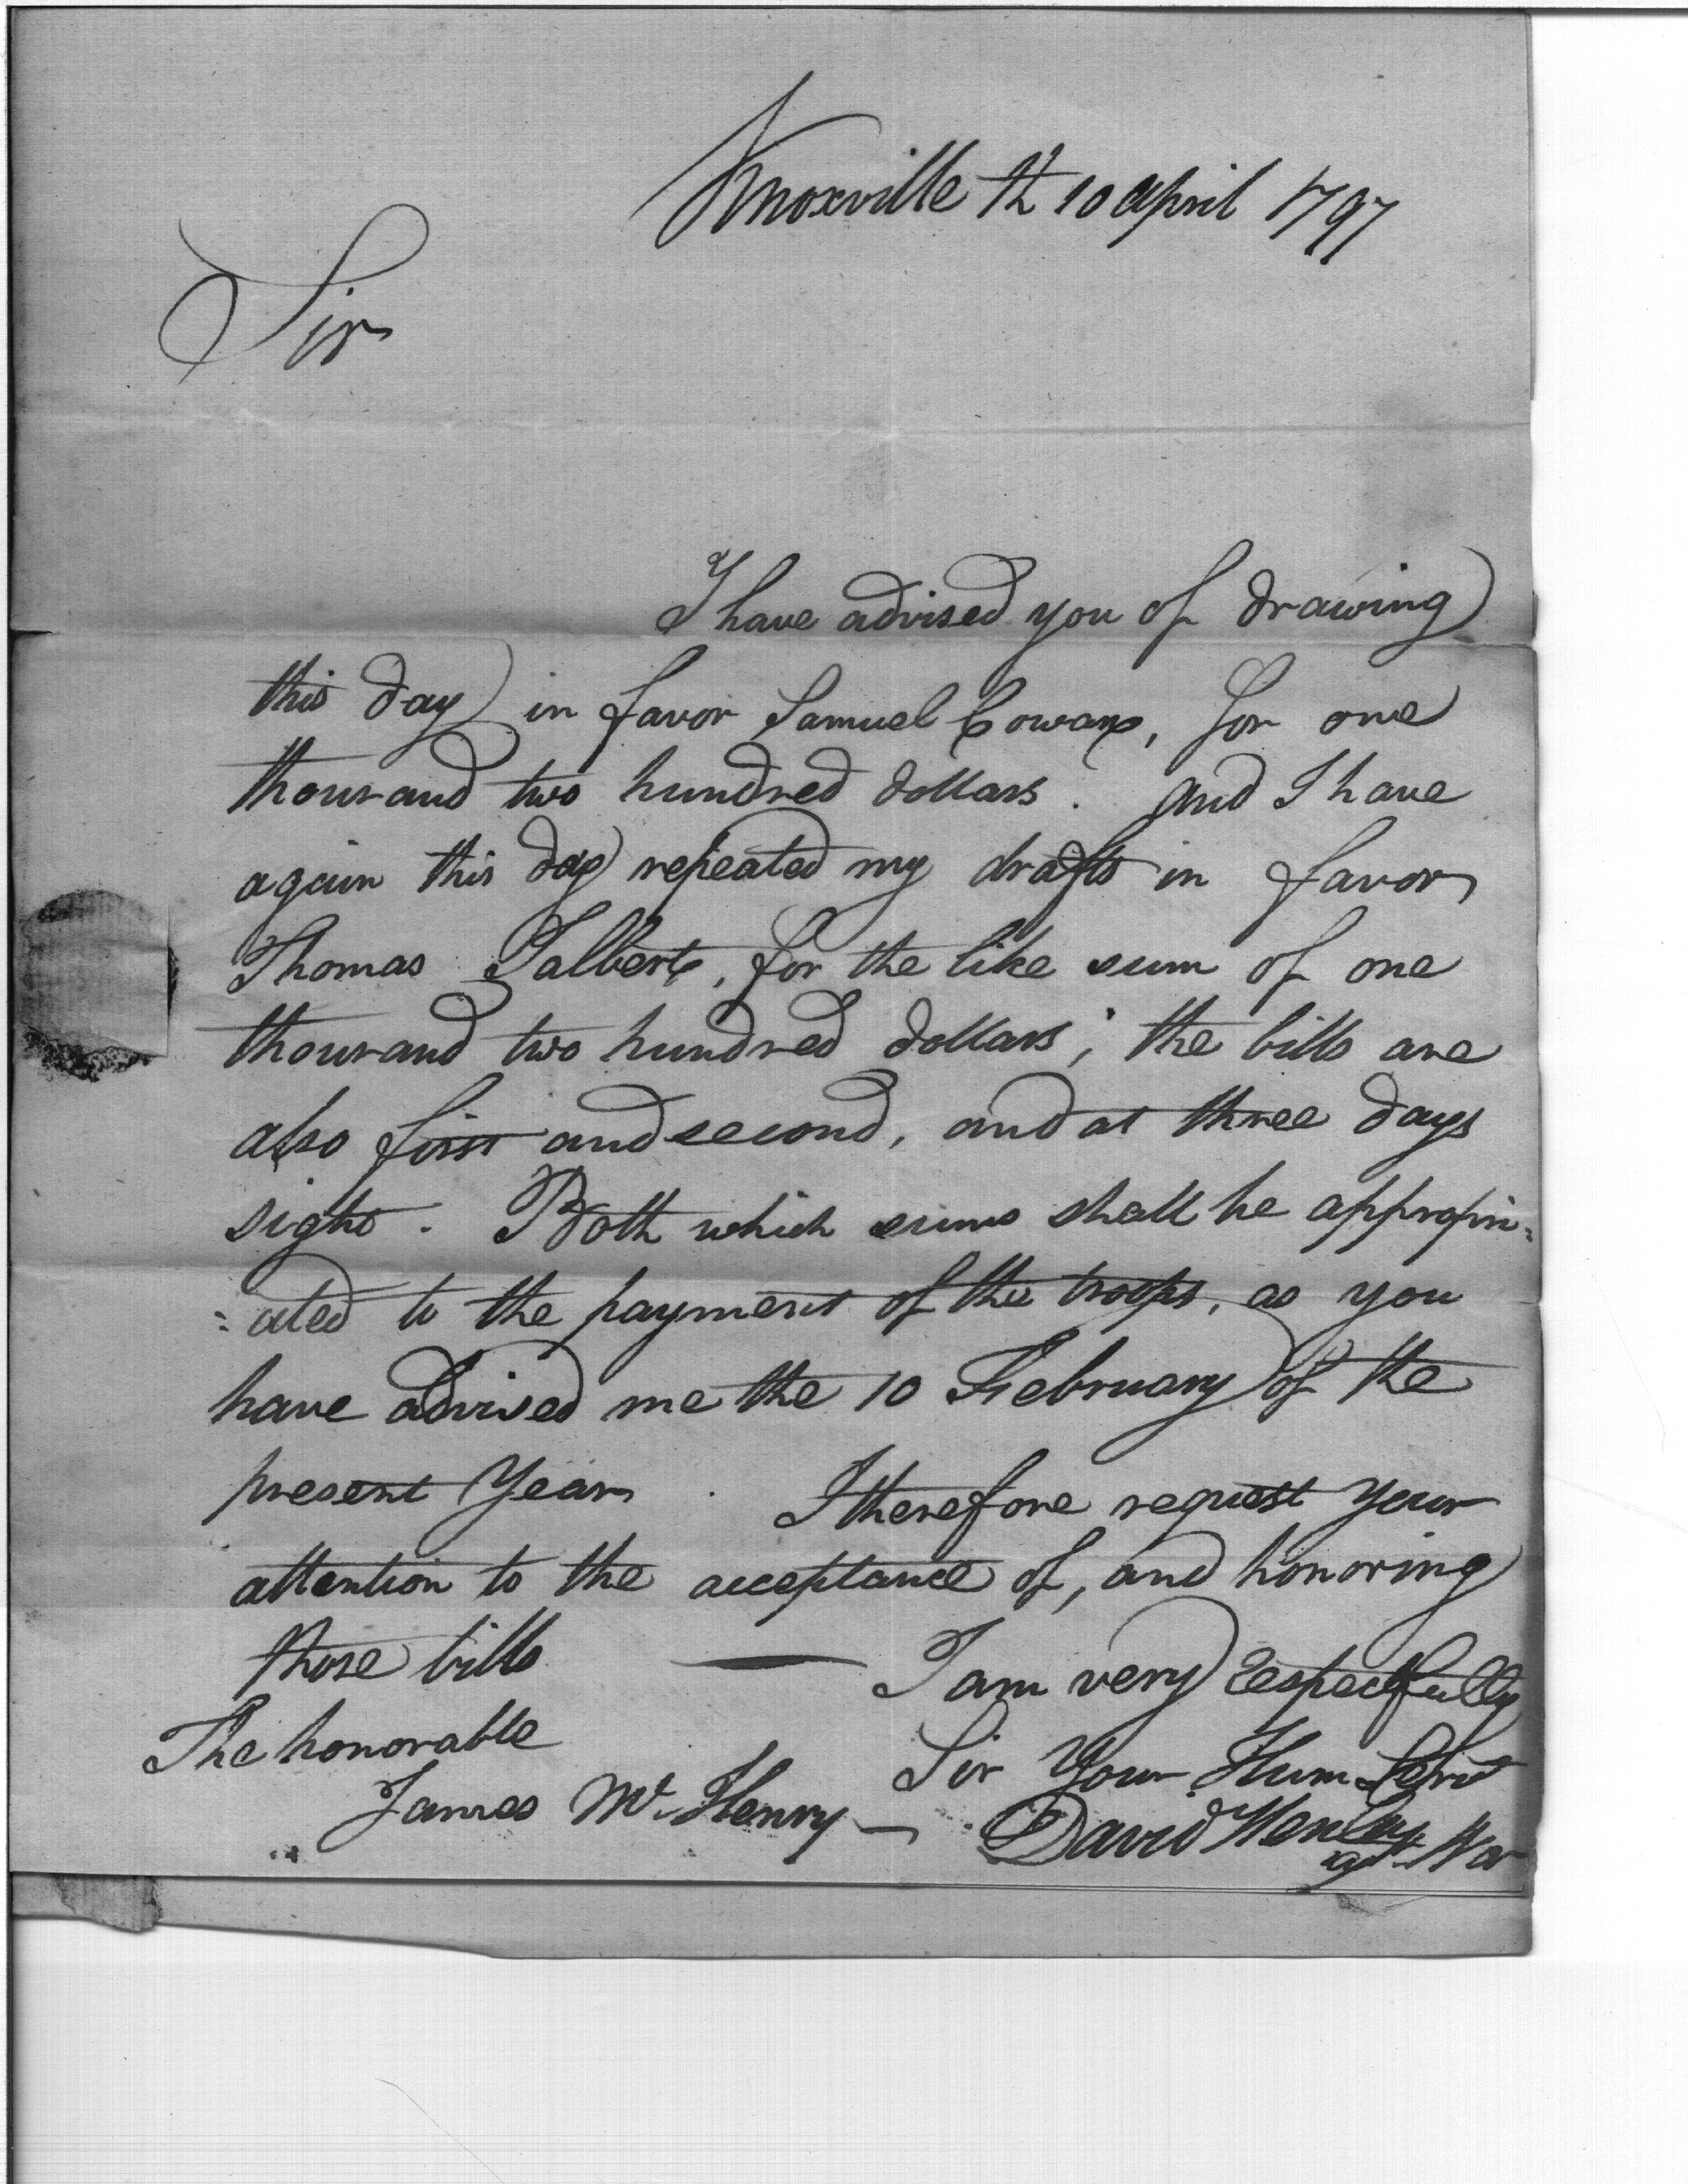 Knoxville th 10 april 1797
Sir
I have advised you of drawing
this day in favor Samuel Cowan, for one
thousand two hundred dollars. and I have
again this day repeated my drafts in favor
Thomas Talbert, for the like sum of one
thousand two hundred dollars; the bills are
also first and second, and at three days
sight. Both which sums shall be appropri=
=ated to the payment of the troops, as you
have advised me the 10 February of the
present Year. I therefore request your
attention to the acceptance of, and honoring
those bills — I am very respectfully
The honorable Sir Your Hum Servt
James McHenry — David Henley
agt War